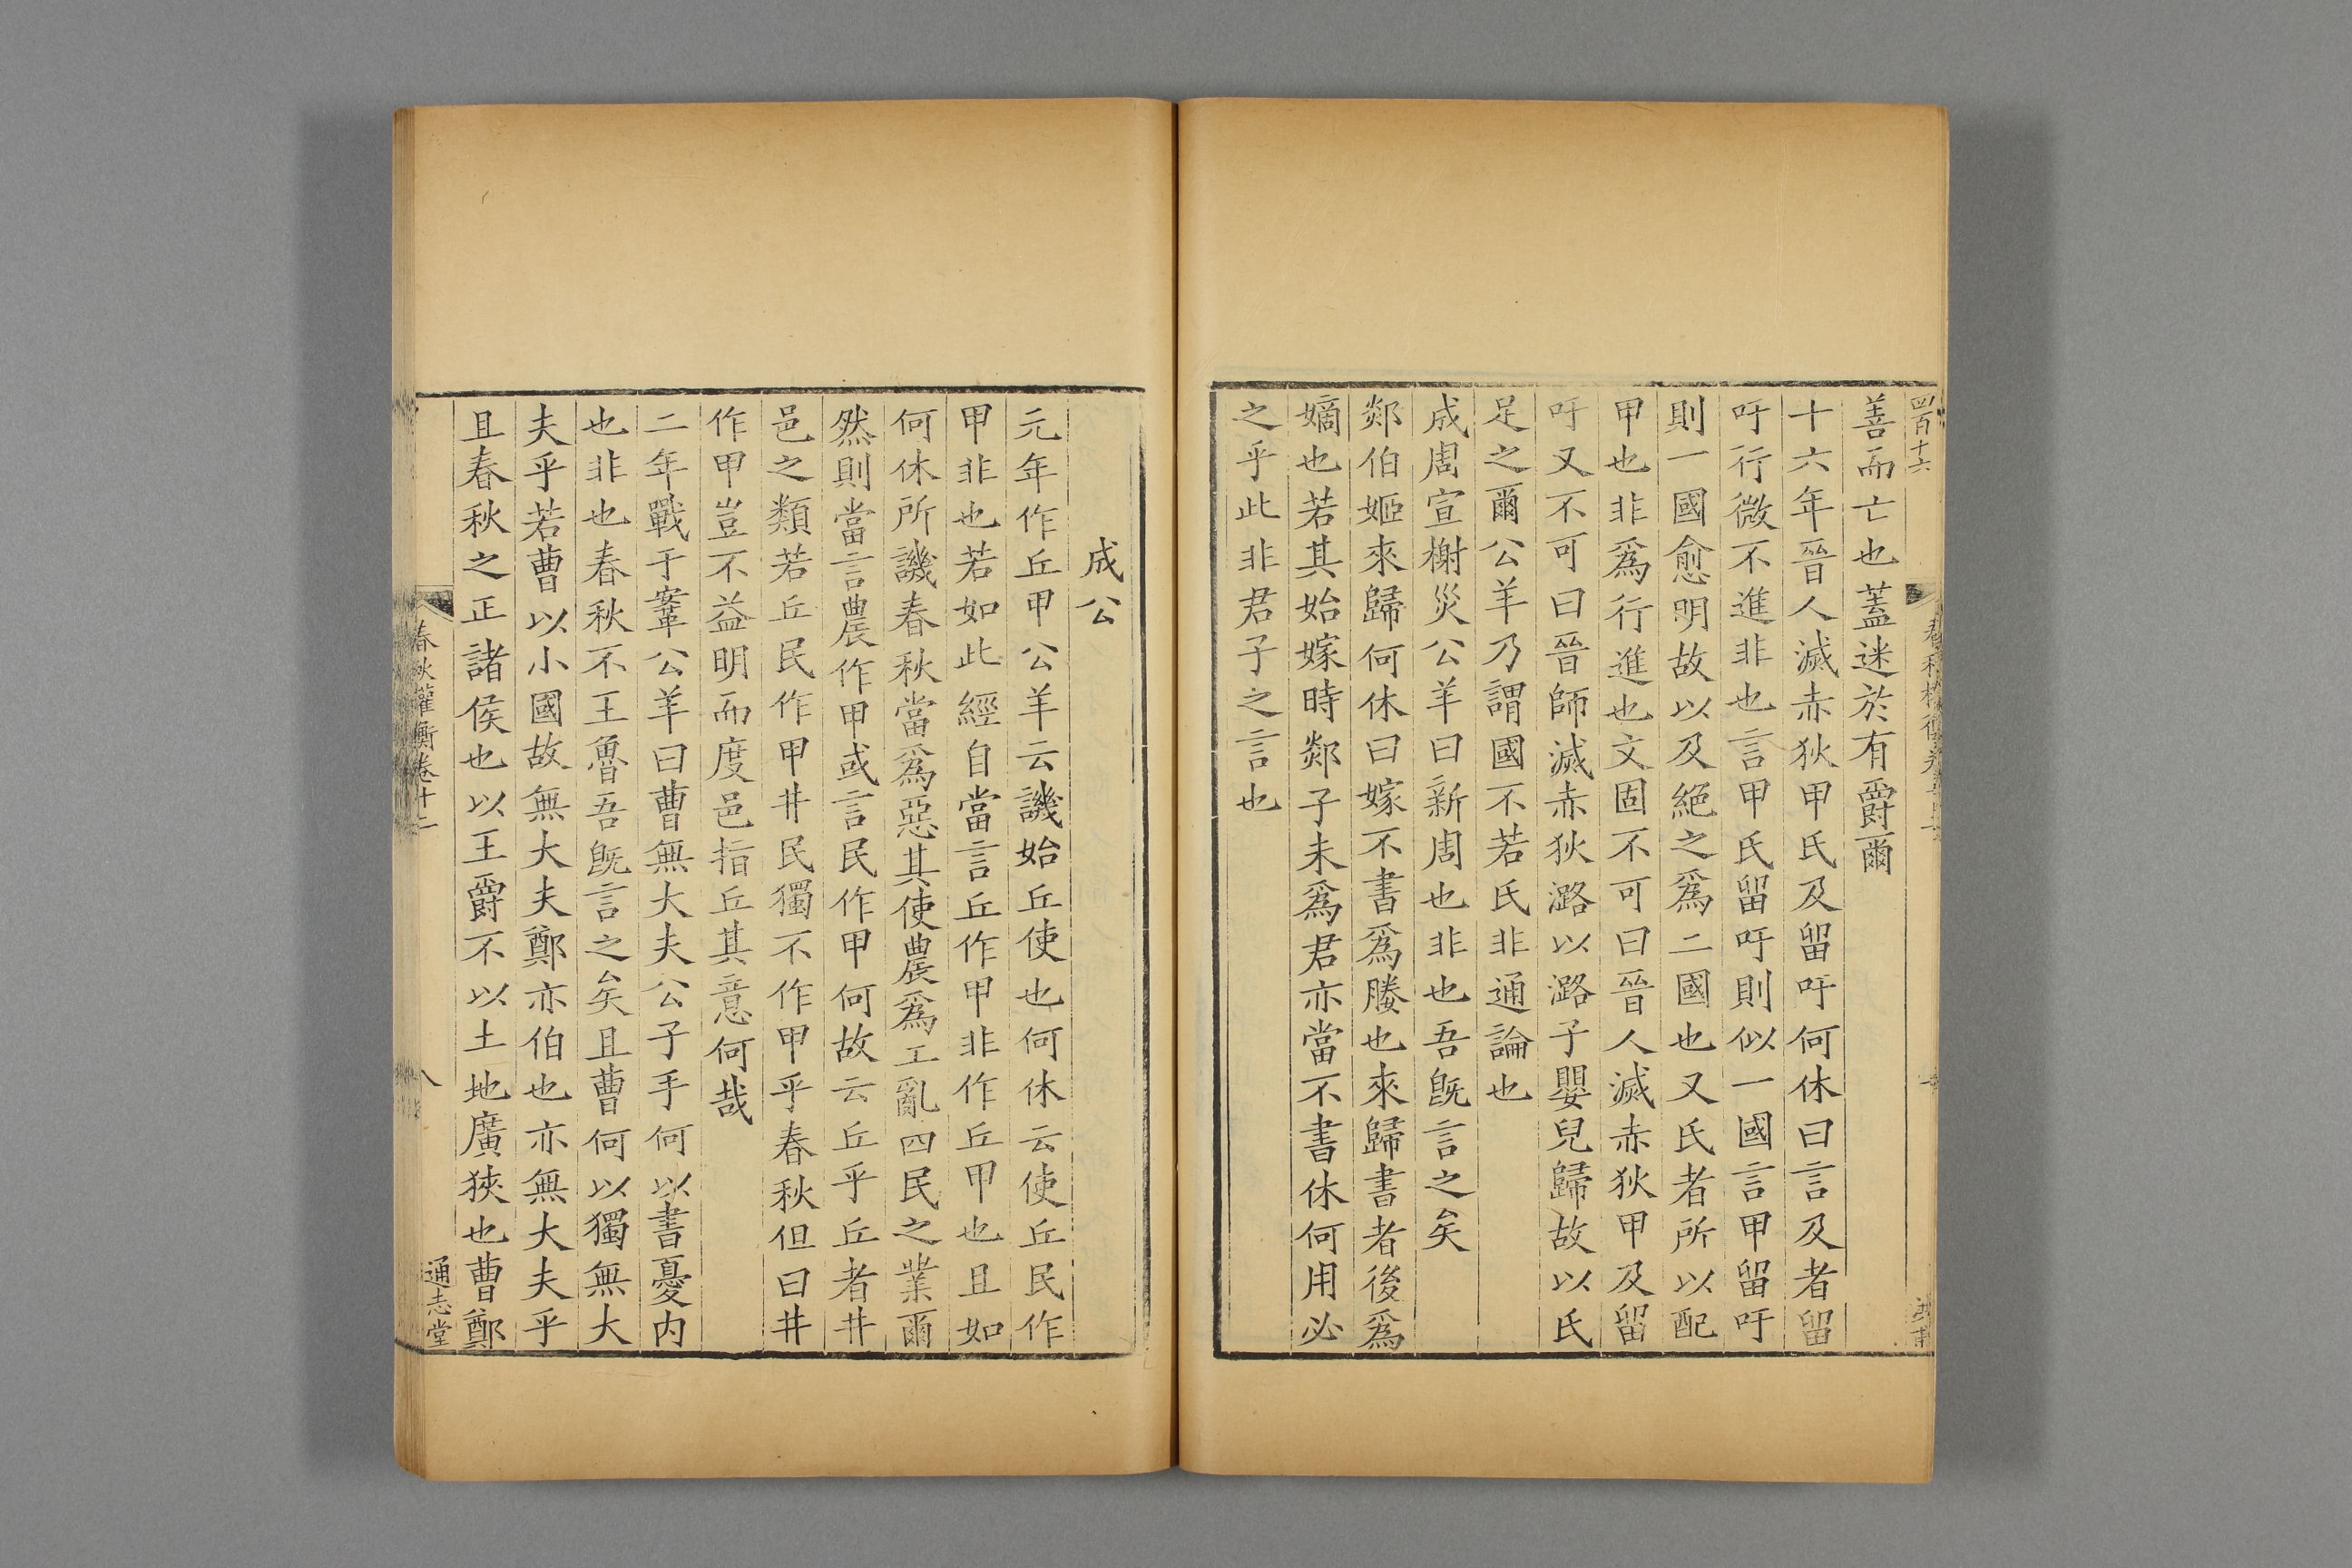 四百十六
善而亡也蓋迷於有爵爾
十六年晉人滅赤狄甲氏及留吁何休曰言及者留
吁行微不進非也言甲氏留吁則似一國言甲留吁
則一國愈明故以及絕之爲二國也又氏者所以配
甲也非爲行進也文固不可曰晉人滅赤狄甲及留
吁又不可曰晉師滅赤狄潞以潞子嬰兒歸故以氏
足之爾公羊乃謂國不若氏非通論也
成周宣榭災公羊曰新周也非也吾既言之矣
郯伯姬來歸何休曰嫁不書爲媵也來歸書者後爲
嫡也若其始嫁時郯子未爲君亦當不書休何用必
之乎此非君子之言也
成公
元年作丘甲公羊云譏始丘使也何休云使丘民作
甲非也若如此經自當言丘作甲非作丘甲也且如
何休所譏春秋當爲惡其使農爲工亂四民之業爾
然則當言農作甲或言民作甲何故云丘乎丘者井
邑之類若丘民作甲井民獨不作甲乎春秋但曰井
作甲豈不益明而度邑指丘其意何哉
二年戰于鞌公羊曰曹無大夫公子手何以書憂内
也非也春秋不王魯吾既言之矣且曹何以獨無大
夫乎若曹以小國故無大夫鄭亦伯也亦無大夫乎
且春秋之正諸侯也以王爵不以土地廣狹也曹鄭
春秋權衡卷十二
八
通志堂